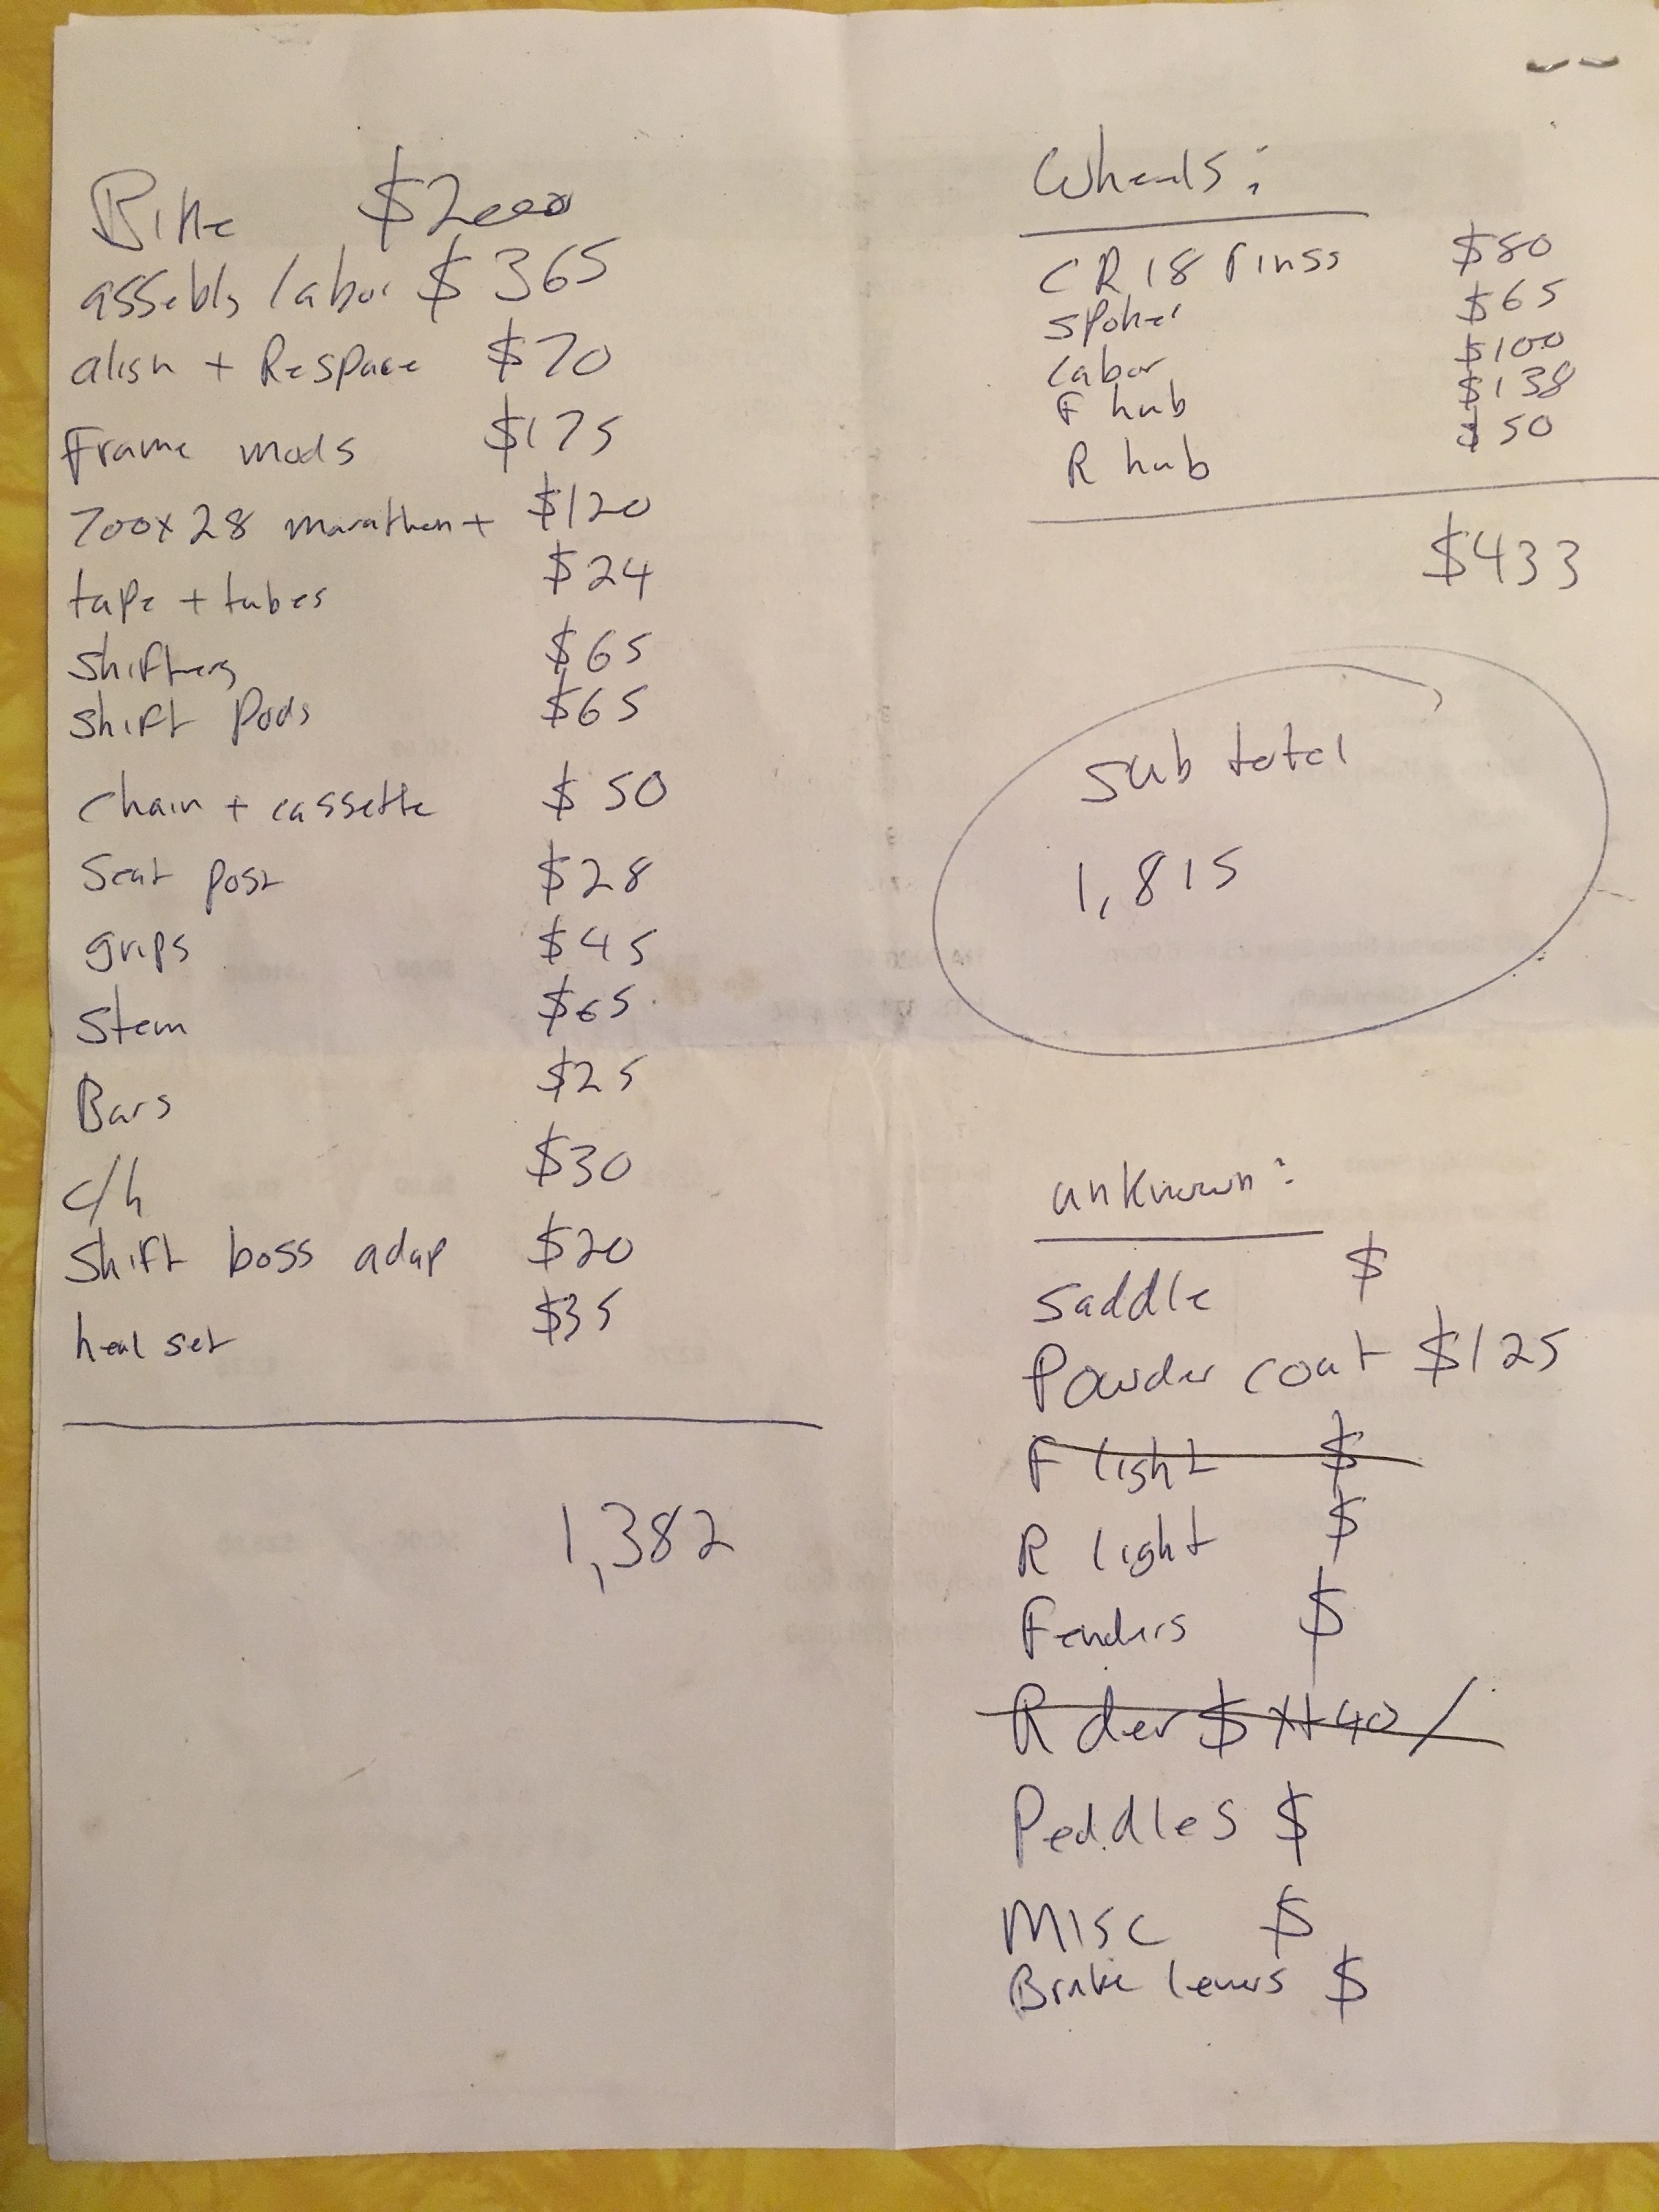 Bike $2000
assebly labor $365
align + Respace $70
Frame mods $175
700x28 marathon+ $120
tape + tubes $24
Shifters $65
Shift Pods $65
Chain + cassette $50
Seat post $28
grips $45
Stem $65
Bars $25
c/h $30
Shift boss adap $20
head set $35
1,382
Wheels:
CR18 rings $80
Spokes $65
Labor $100
F hub $138
R hub $50
$433
Sub total
1,815
unknown:
Saddle $
Powder coat $125
F light $
R light $
Fenders $
R der $ xt 40 /
Peddles $
Misc $
Brake levers $